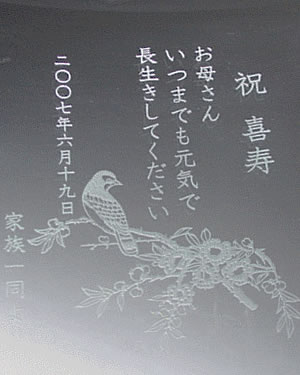 祝 喜寿
お母さん
いつまでも元気で
長生きしてください
二〇〇七年六月十九日
家族一同より